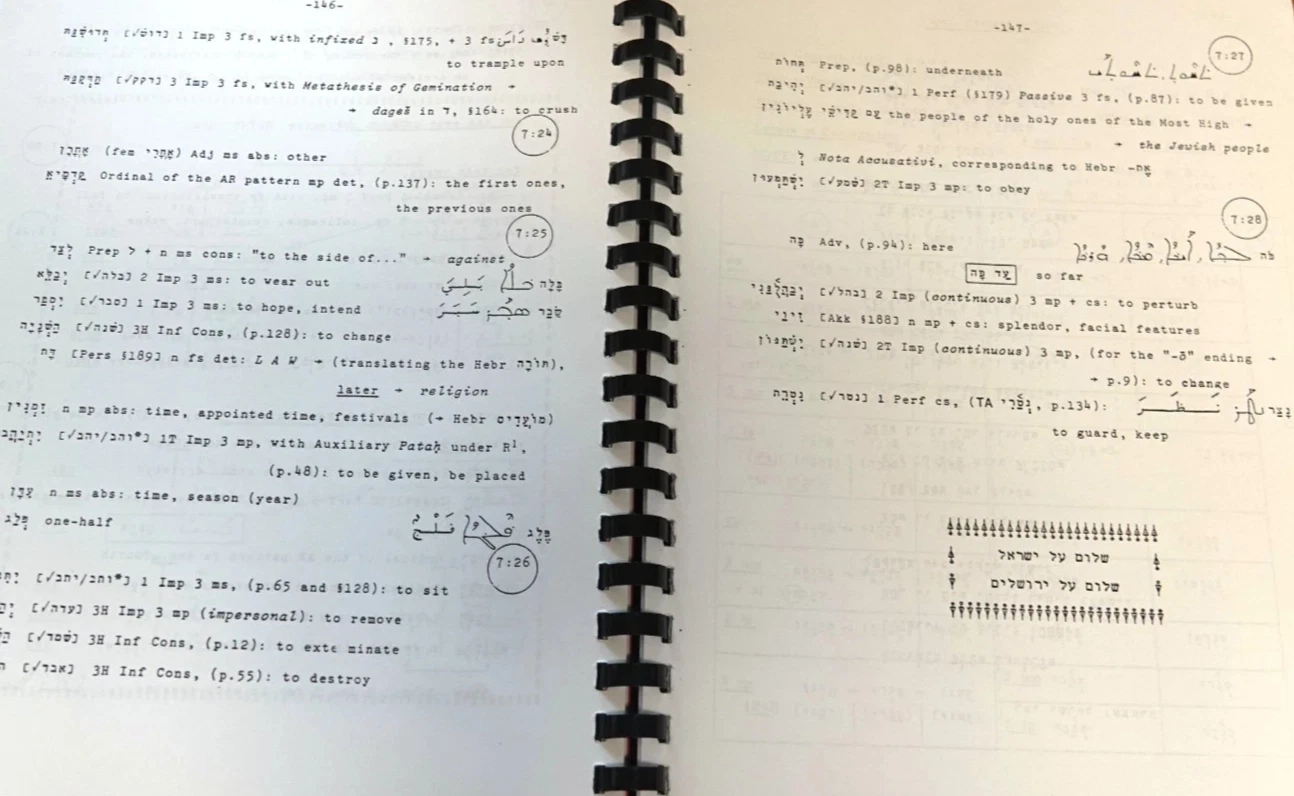 -146-
[√דוש] 1 Imp 3 fs, with infixed נ , §175, + 3 fs
to trample upon
[√דקק] 3 Imp 3 fs, with Metathesis of Gemination →
→ dageš in ד, §164: to crush
7:24
(fem אָחֳרִי) Adj ms abs: other
Ordinal of the AR pattern mp det, (p.137): the first ones,
the previous ones
7:25
לְצַד Prep ל + n ms cons: "to the side of..." → against
יְבַלֵּא [√בלה] 2 Imp 3 ms: to wear out
יִסְבַּר [√סבר] 1 Imp 3 ms: to hope, intend
הַשְׁנָיָה [√שנה] 3H Inf Cons, (p.128): to change
דָּת [Pers §189] n fs det: L A W → (translating the Hebr תּוֹרָה),
later → religion
זִמְנִין n mp abs: time, appointed time, festivals (→ Hebr מוֹעֲדִים)
[√יהב/והב*] 1T Imp 3 mp, with Auxiliary Pataḥ under R¹,
(p.48): to be given, be placed
עִדָּן n ms abs: time, season (year)
פְּלַג one-half
7:26
[√יתב/ותב*] 1 Imp 3 ms, (p.65 and §128): to sit
[√עדה] 3H Imp 3 mp (impersonal): to remove
[√שמד] 3H Inf Cons, (p.12): to exte minate
[√אבד] 3H Inf Cons, (p.55): to destroy
-147-
7:27
תְּחוֹת Prep, (p.98): underneath
יְהִיבַת [√יהב/והב*] 1 Perf (§179) Passive 3 fs, (p.87): to be given
עַם קַדִּישֵׁי עֶלְיוֹנִין the people of the holy ones of the Most High →
→ the Jewish people
לְ Nota Accusativi, corresponding to Hebr אֶת-
יִשְׁתַּמְּעוּן [√שמע] 2T Imp 3 mp: to obey
7:28
כָּה Adv, (p.94): here
עַד כָּה so far
יְבַהֲלֻנַּנִי [√בהל] 2 Imp (continuous) 3 mp + cs: to perturb
זִיוַי [Akk §188] n mp + cs: splendor, facial features
יִשְׁתַּנּוֹן [√שנה] 2T Imp (continuous) 3 mp, (for the "-ō" ending →
→ p.9): to change
נִטְרֵת [√נטר] 1 Perf cs, (TA נְטָרִי, p.134):
to guard, keep
שלום על ישראל
שלום על ירושלים